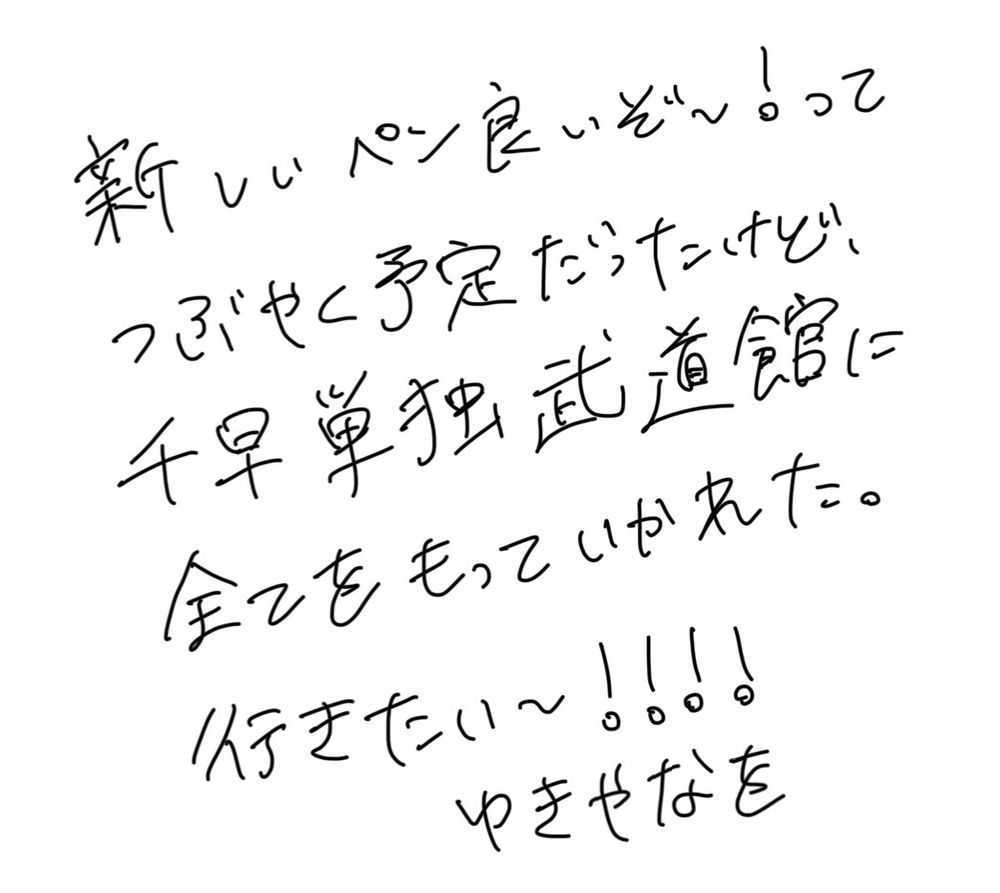 新しいペン良いぞ〜!って
つぶやく予定だったけど、
千早単独武道館に
全てをもっていかれた。
行きたい〜!!!!
ゆきやなを